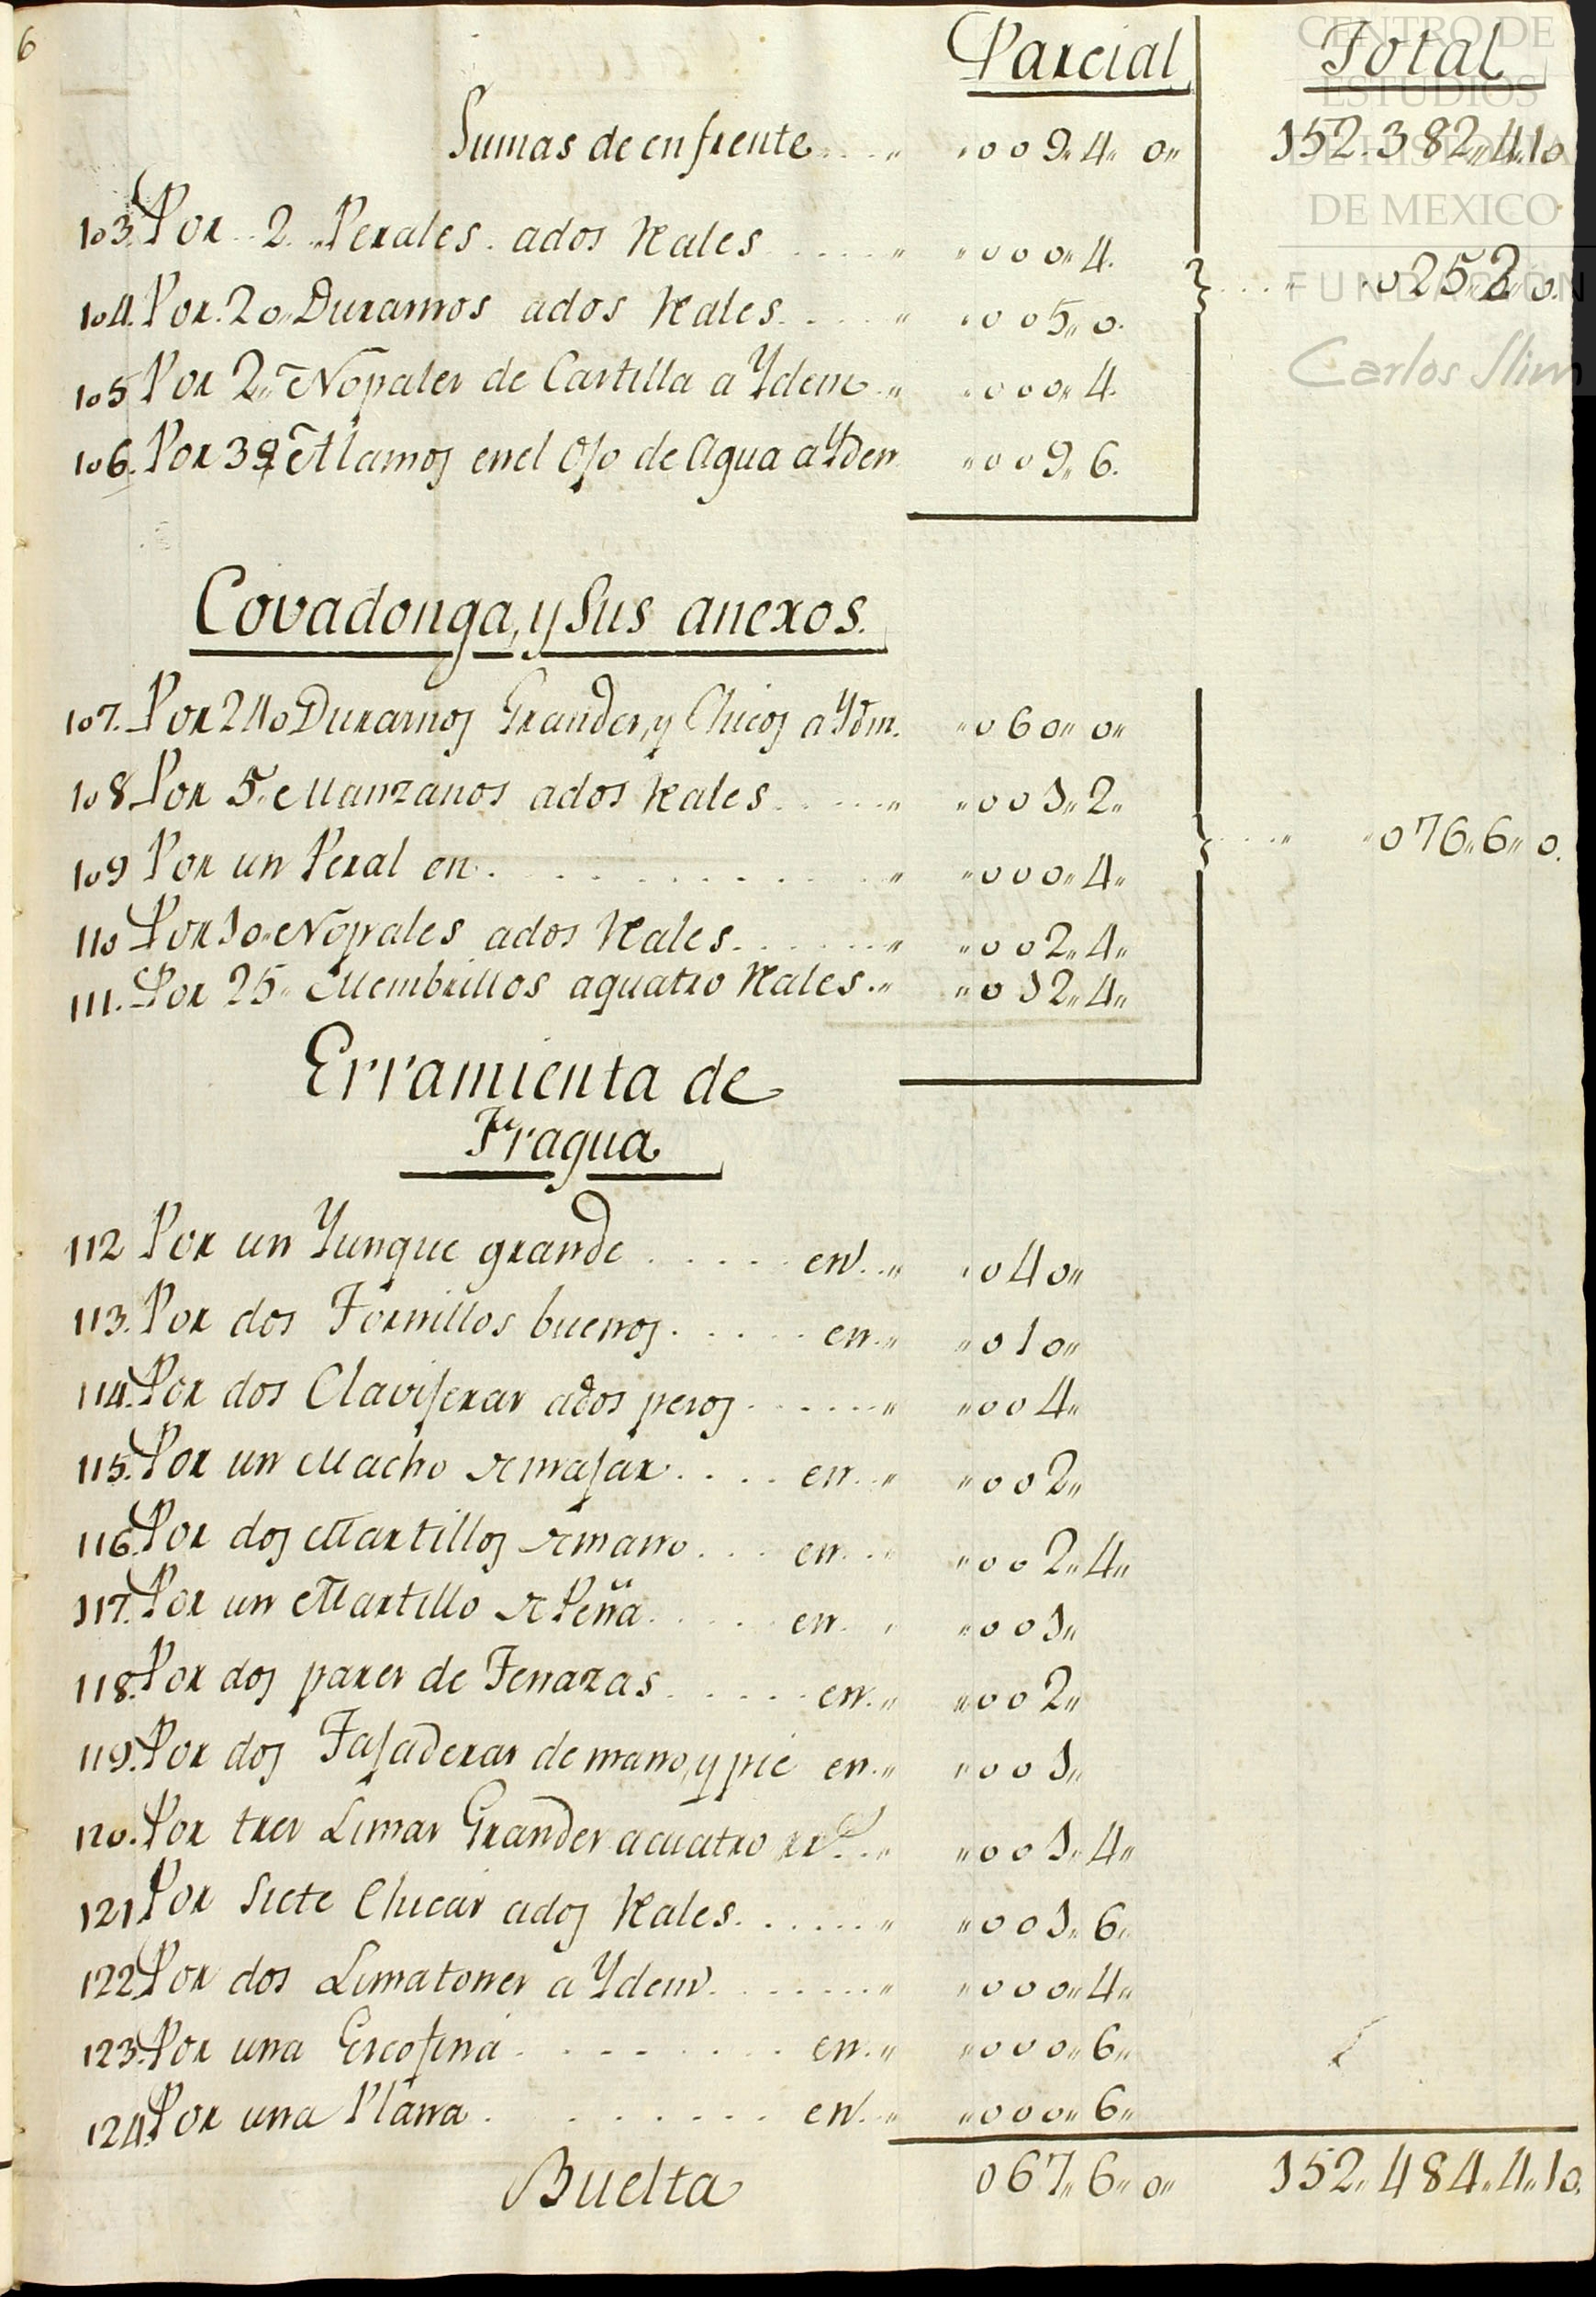 6
Parcial Total
Sumas de enfrente.... „ „009„4„0„ 152.382„4„10
103. Por 2. Perales. ados Reales..... „ „000„4.
104. Por. 20„ Duranos ados Reales.... „ „005„0. „025„2„0.
105 Por 2„ Nopales de Castilla a Ydem.„ „000„4.
106. Por 39 Alamos en el Ojo de Agua a Ydem „009„6.
Covadonga, y Sus anexos.
107. Por 240 Duranos Grandes, y Chicos a Ydm. „060„0„
108 Por 5„ Manzanos ados Reales..... „ „001„2„
109 Por un Peral en.......... „ „000„4„ „076„6„0.
110 Por 10„ Nopales ados Reales...... „ „002„4„
111. Por 25„ Membrillos aquatro Reales.„ „012„4„
Erramienta de
Fragua
112 Por un Yunque grande..... en..„ „040„
113. Por dos Tornillos buenos..... en.„ „010„
114. Por dos Clavijeras ados pesos...... „ „004„
115. Por un Macho de majar.... en..„ „002„
116. Por dos Martillos de mano... en.. „002„4„
117. Por un Martillo de Peña.... en. „ „001„
118. Por dos pares de Tenazas..... en.„ „002„
119. Por dos Tajaderas de mano, y pie en.„ „001„
120. Por tres Limas Grandes acuatro rr.s..„ „001„4„
121 Por Siete Chicas ados Reales...... „ „001„6„
122 Por dos Limatones a Ydem....... „ „000„4„
123. Por una Escofina........ en.„ „000„6„
124. Por una Plana....... en.„ „000„6„
Buelta 067„6„0„ 152„484„4„10.
CENTRO DE
ESTUDIOS
DE HISTORIA
DE MEXICO
FUNDACIÓN
Carlos Slim